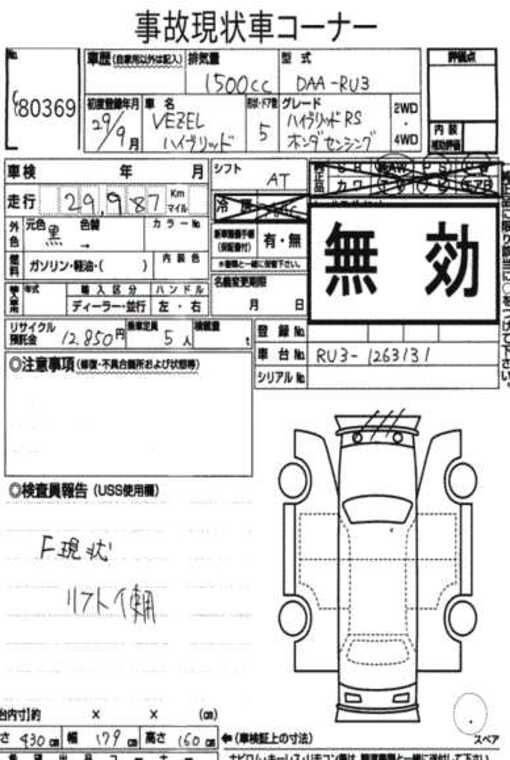 事故現状車コーナー
No. 80369
車歴(自家用以外は記入) 排気量 1500cc 型式 DAA-RU3 評価点
初度登録年月 29/9月 車名 VEZEL ハイブリッド 形状・ドア数 5 グレード ハイブリッドRS ホンダセンシング 2WD・4WD
内装補助評価
車検 年 月 シフト AT
走行 29,987 Km マイル
外色 元色 黒 色替 → カラーNo. 有・無
燃料 ガソリン・軽油・( ) 内装色 ※書類と一緒に保管下さい。
無効
輸入車用 年式 輸入区分 ディーラー・並行 ハンドル 左・右 名義変更期限 月 日
リサイクル預託金 12,850円 乗車定員 5人 積載量 t 登録No.
車台No. RU3-1263131
シリアルNo.
◎注意事項(修復・不具合箇所および状態等)
◎検査員報告(USS使用欄)
F現状
リフト使用
スペア
台内寸]約 × × (cm)
さ 430cm 幅 179cm 高さ 160cm ←(車検証上の寸法)